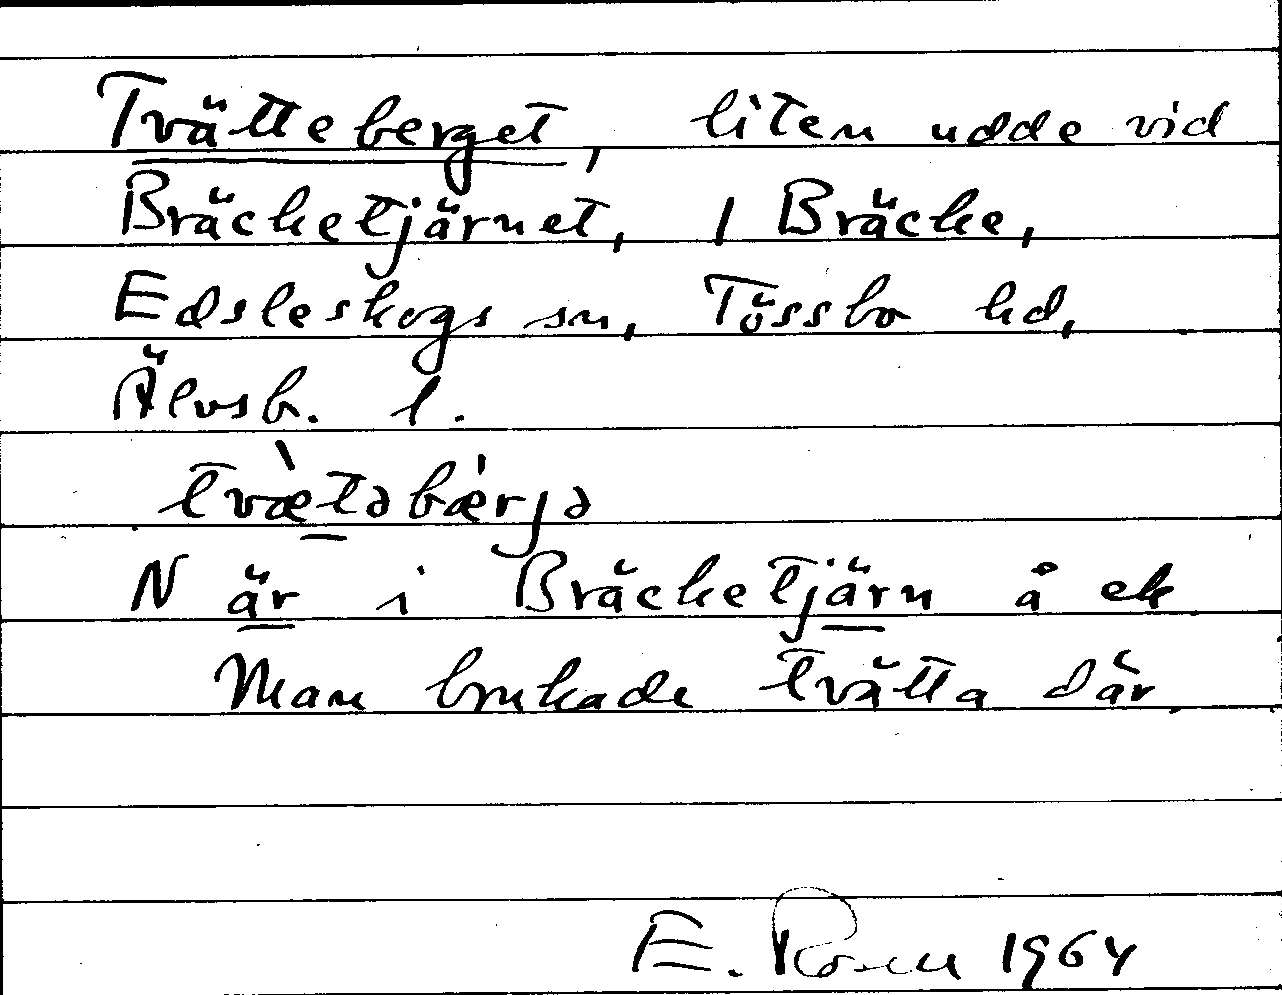 Tvätteberget, liten udde vid
Bräcketjärnet, 1 Bräcke,
Edsleskogs sn, Tössbo hd,
Älvsb. l.
tvæ̀təbǽrjə
N är i Bräcketjärn å ek
Man brukade tvätta där.
E. Rosen 1964